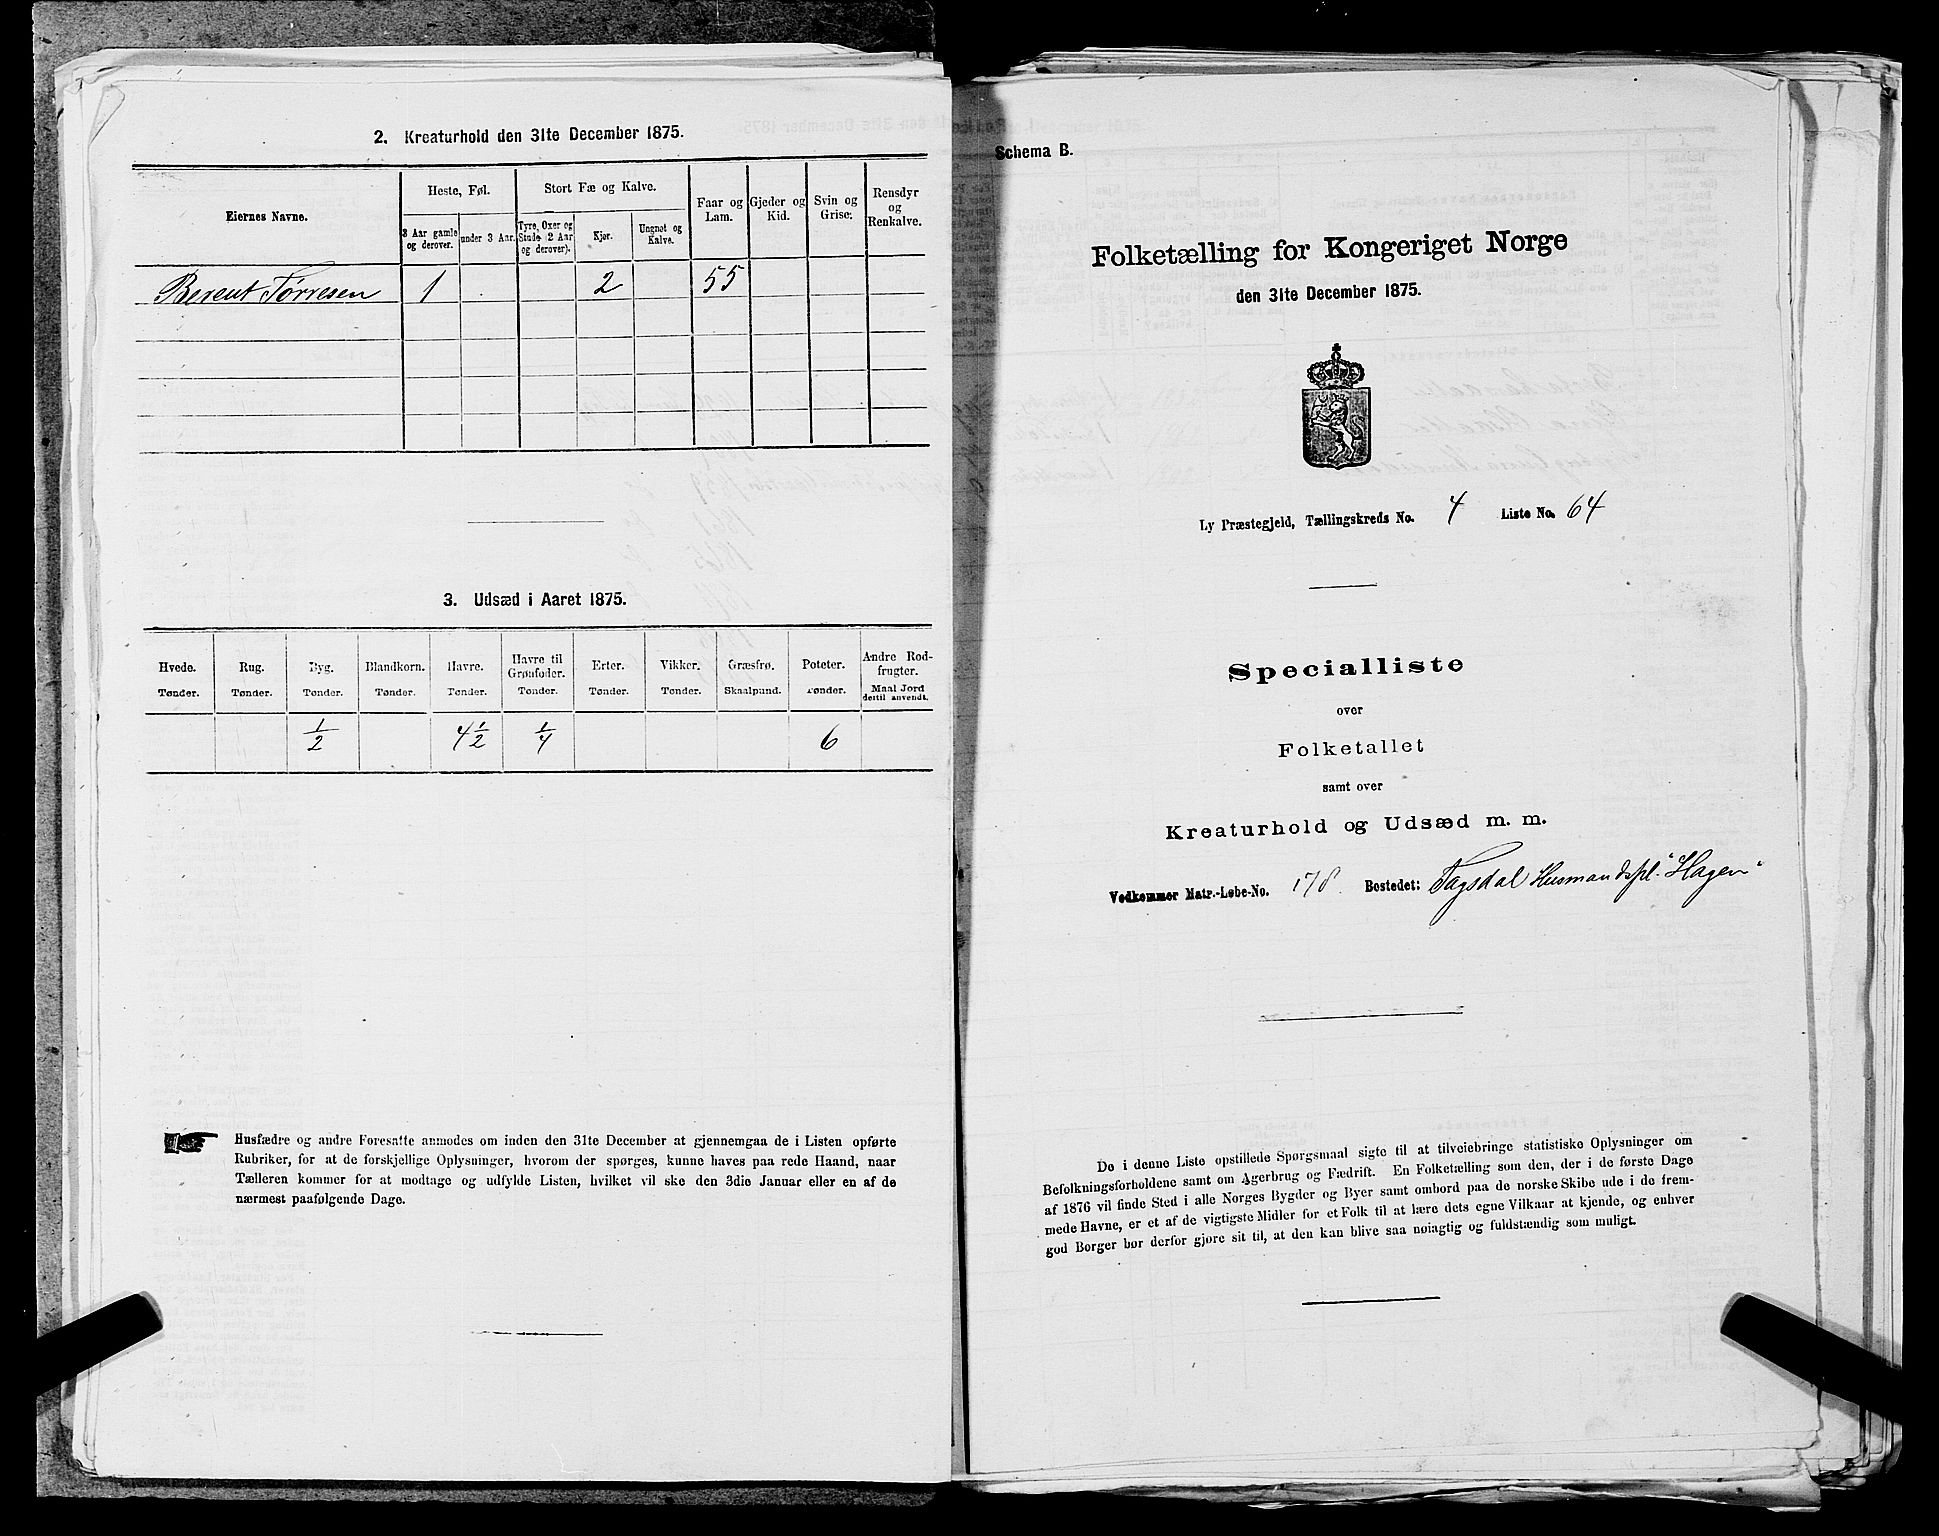 2. Kreaturhold den 31te December 1875.
Eiernes Navne.
Heste, Føl.
Stort Fæ og Kalve.
Faar og Lam.
Gjeder og Kid.
Svin og Grise.
Rensdyr og Renkalve.
3 Aar gamle og derover.
under 3 Aar.
Tyre, Oxer og Stude (2 Aar og derover).
Kjør.
Ungnøt og Kalve.
Berent Tørresen 1 2 55
3. Udsæd i Aaret 1875.
Hvede. Rug. Byg. Blandkorn. Havre. Havre til Grønfoder. Erter. Vikker. Græsfrø. Poteter. Andre Rodfrugter.
Tønder. Tønder. Tønder. Tønder. Tønder. Tønder. Tønder. Tønder. Skaalpund. Tønder. Maal Jord dertil anvendt.
1/2 4 1/2 1/4 6
Husfædre og andre Foresatte anmodes om inden den 31te December at gjennemgaa de i Listen opførte
Rubriker, for at de forskjellige Oplysninger, hvorom der spørges, kunne haves paa rede Haand, naar
Tælleren kommer for at modtage og udfylde Listen, hvilket vil ske den 3die Januar eller en af de
nærmest paafølgende Dage.
Schema B.
Folketælling for Kongeriget Norge
den 31te December 1875.
Ly Præstegjeld, Tællingskreds No. 4 Liste No. 64
Specialliste
over
Folketallet
samt over
Kreaturhold og Udsæd m. m.
Vedkommer Matr.-Løbe-No. 178. Bostedet: Tagsdal Husmandspl. "Hagen"
De i denne Liste opstillede Spørgsmaal sigte til at tilveiebringe statistiske Oplysninger om
Befolkningsforholdene samt om Agerbrug og Fædrift. En Folketælling som den, der i de første Dage
af 1876 vil finde Sted i alle Norges Bygder og Byer samt ombord paa de norske Skibe ude i de frem-
mede Havne, er et af de vigtigste Midler for et Folk til at lære dets egne Vilkaar at kjende, og enhver
god Borger bør derfor gjøre sit til, at den kan blive saa nøiagtig og fuldstændig som muligt.